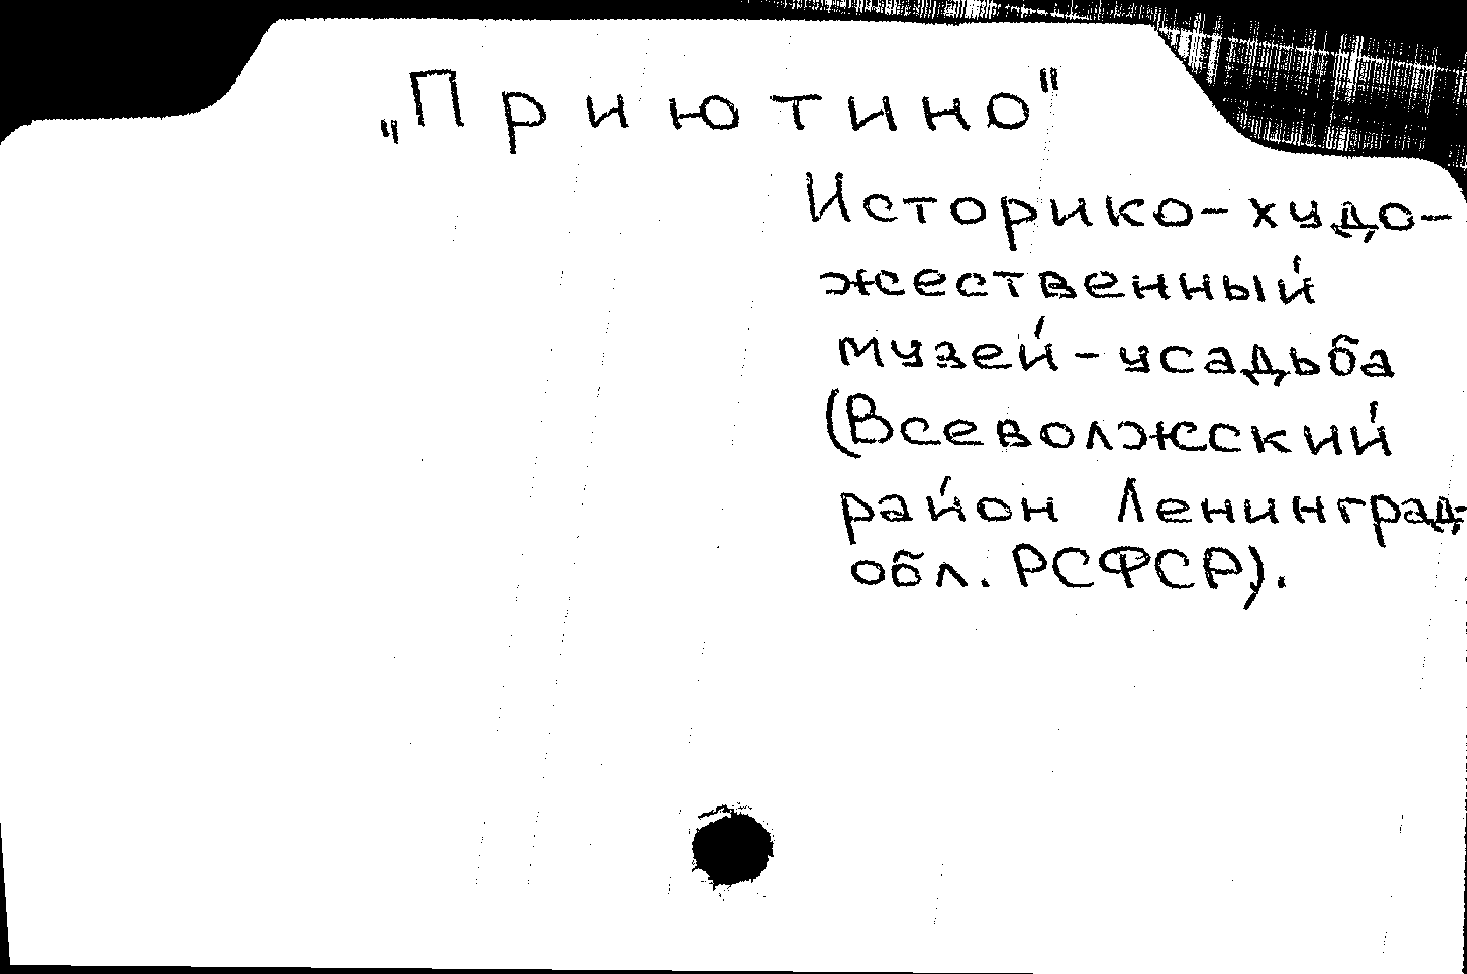 „Приютино"
Историко-худо-
жественный
музей-усадьба
(Всеволжский
район Ленинград-
обл. РСФСР).